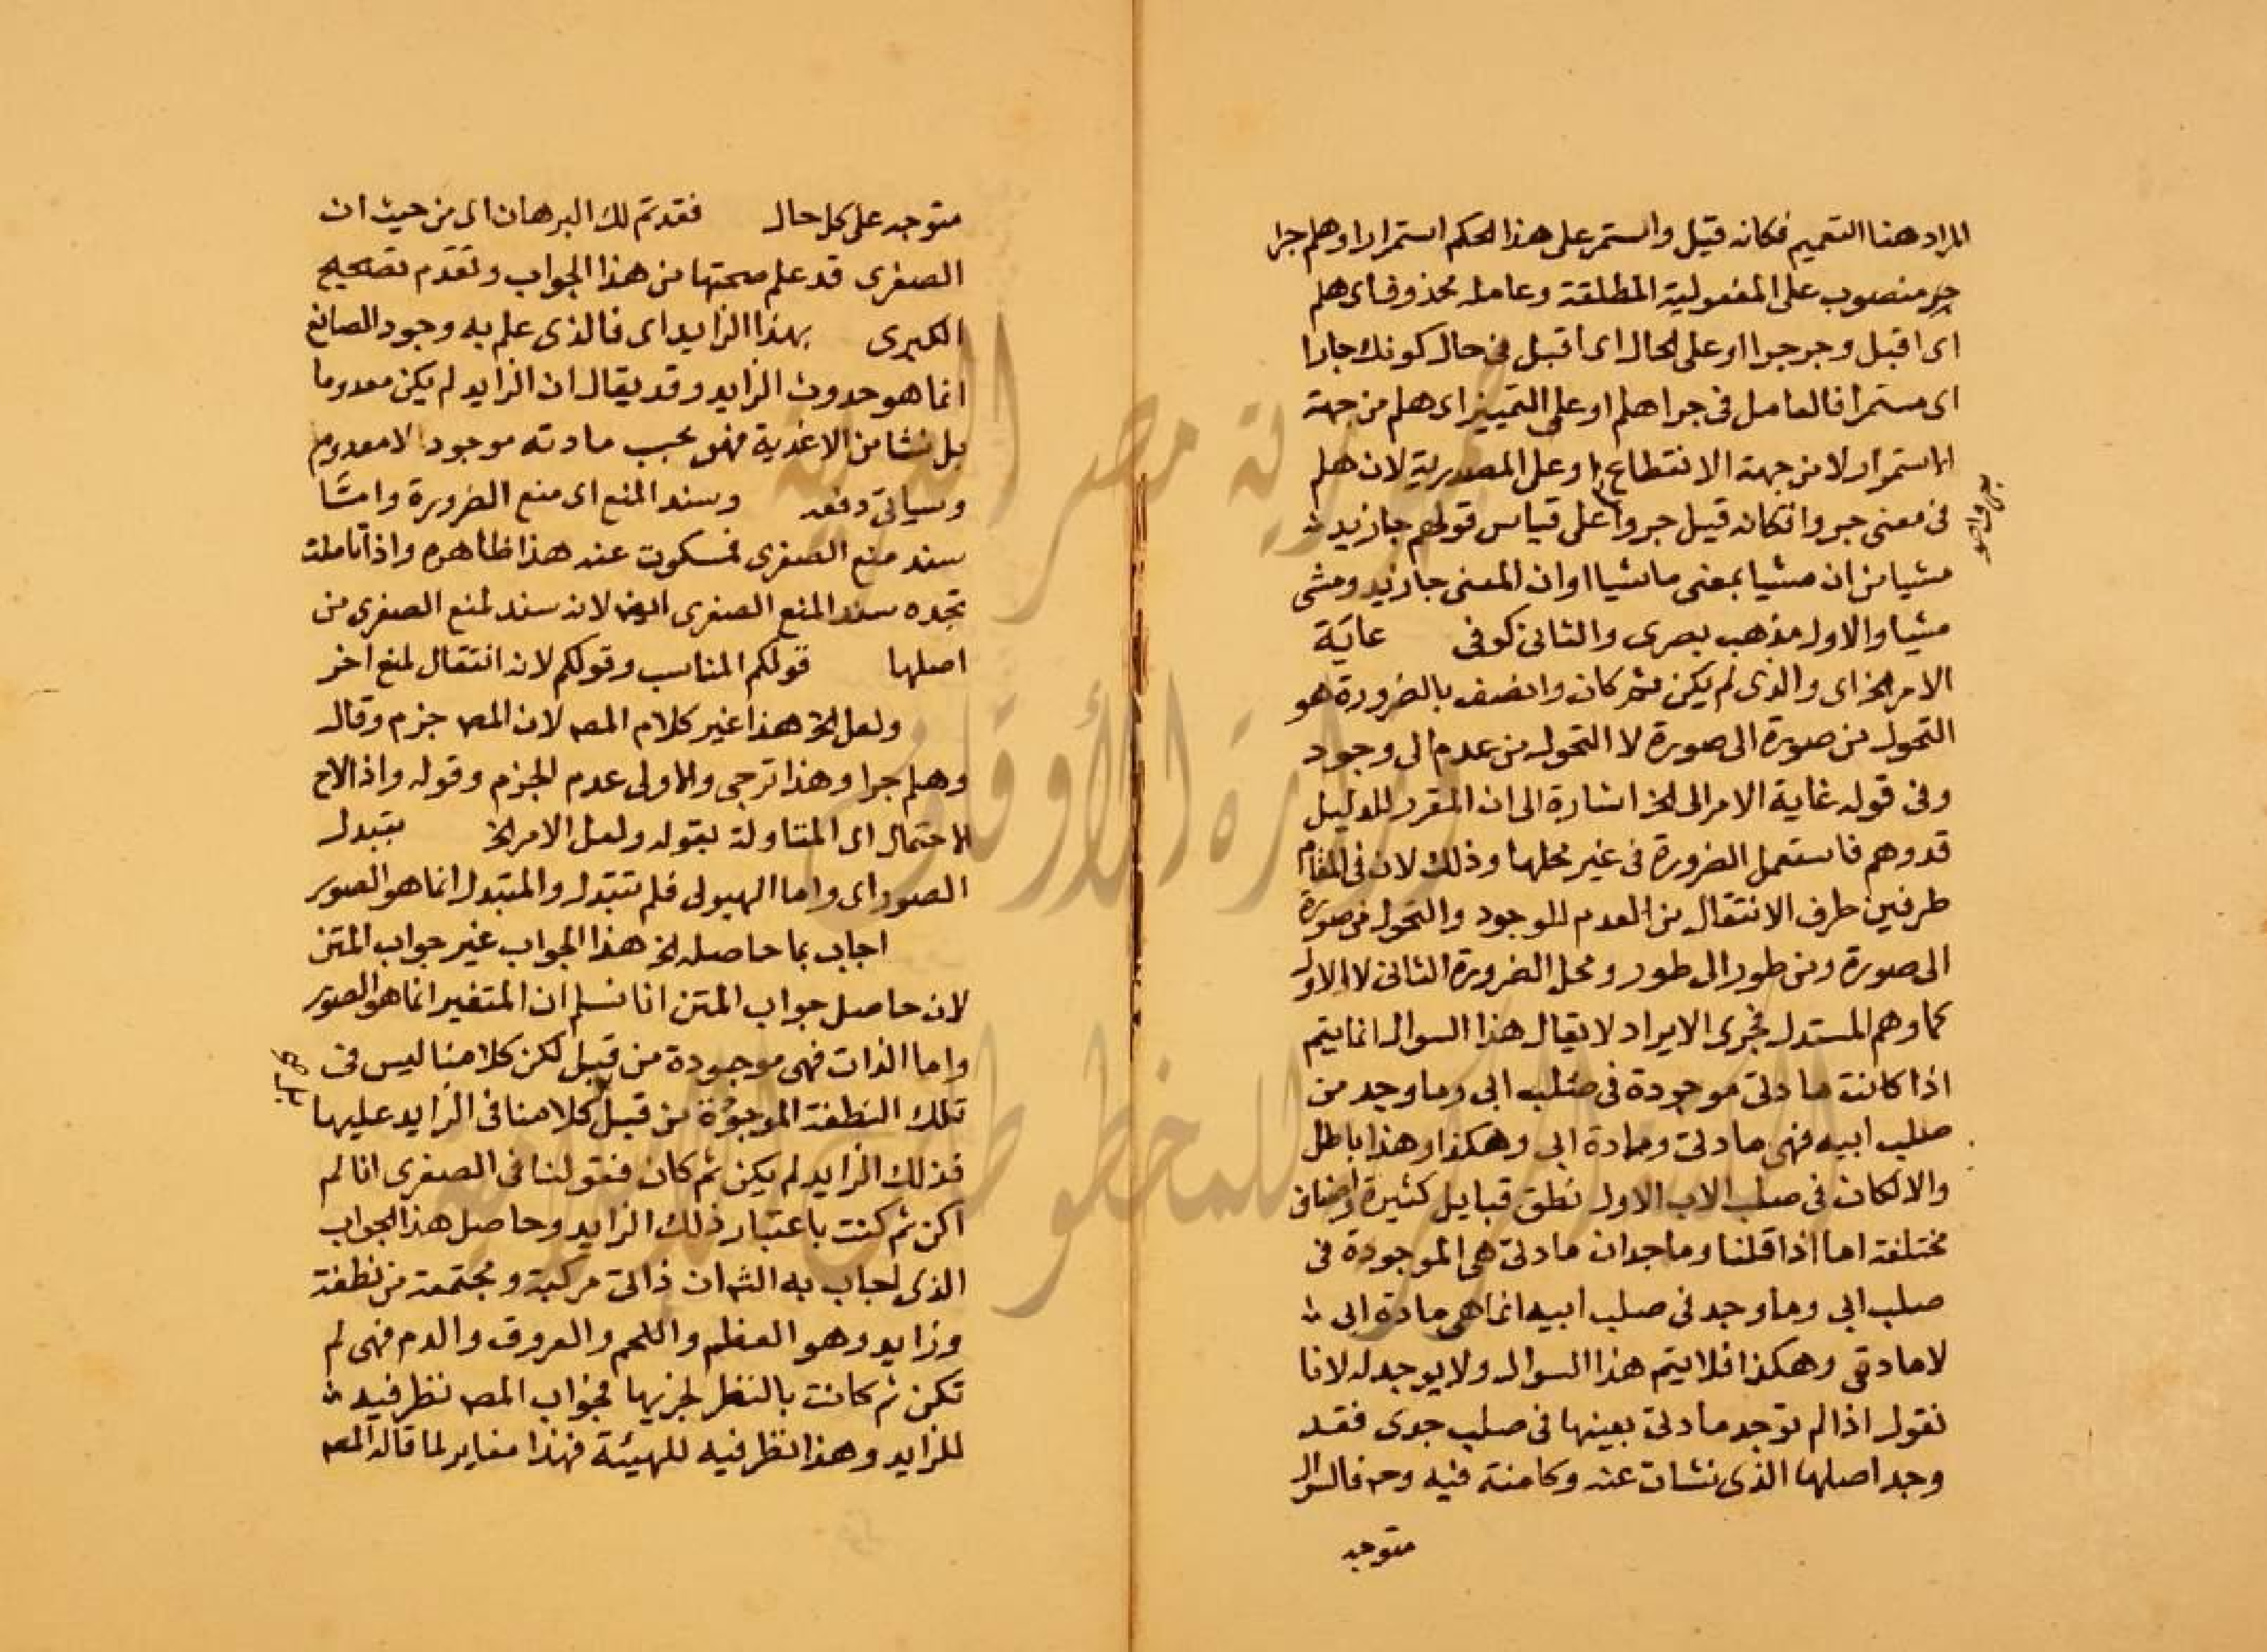 المراد هنا التعميم فكانه قيل واستمر على هذا الحكم استمرارا وهلم جرا
جر منصوب على المفعولية المطلقة وعامله محذوف اى هلم
اى اقبل وجر جرا او على الحال اى اقبل فى حال كونك جارا
اى مستمرا فالعامل فى جرا هلم او على التمييز اى هلم من جهة
الاستمرار لا من جهة الانقطاع او على المصدرية لان هلم
فى معنى جروا فكانه قيل جروا على قياس قولهم جا زيد
مشيا من ان مشيا بمعنى ماشيا او ان المعنى جا زيد ومشى
مشيا والاول مذهب بصرى والثانى كوفى غاية
الامر الخ اى والذى لم يكن ثم كان واتصف بالضرورة هو
التحول من صورة الى صورة لا التحول من عدم الى وجود
وفى قوله غاية الامر الى الخ اشارة الى ان المقرر للدليل
قد وهم فاستعمل الضرورة فى غير محلها وذلك لان فى المقام
طرفين طرف الانتقال من العدم للوجود والتحول من صورة
الى صورة ومن طور الى طور ومحل الضرورة الثانى لا الاول
كما وهم المستدل فجرى الايراد لا يقال هذا السوال انما يتم
اذا كانت مادتى موجودة فى صلب ابى وما وجد من
صلب ابيه فهى مادتى ومادة ابى وهكذا وهذا باطل
والا لكان فى صلب الاب الاول نطق قبايل كثيرة
مختلفة اما اذا قلنا وما جد ان مادتى هى الموجودة فى
صلب ابى وما وجد فى صلب ابيه انما هى مادة ابى
لا مادتى وهكذا فلا يتم هذا السوال ولا يوجد له لانا
نقول اذا لم توجد مادتى بعينها فى صلب جدى فقد
وجد اصلها الذى نشات عنه وكامنة فيه وح فالسوال
متوجه
متوجه على كل حال فقد تم لك البرهان اى من حيث ان
الصغرى قد علم صحتها من هذا الجواب وتقدم تصحيح
الكبرى بهذا الزايد اى فالذى علم به وجود الصانع
انما هو حدوث الزايد وقد يقال ان الزايد لم يكن معدوما
بل نشا من الاغذية فهو بحسب مادته موجود لا معدوم
وسياتى دفعه وسند المنع اى منع الضرورة واما
سند منع الصغرى فمسكوت عنه هذا ظاهره واذا تاملت
تجده سند المنع الصغرى ايضا لانه سند لمنع الصغرى من
اصلها قولكم المناسب وقولكم لانه انتقال لمنع اخر
ولعل الخ هذا غير كلام المص لان المص جزم وقال
وهلم جرا وهذا ترجى والاولى عدم الجزم وقوله واذا لاح
الاحتمال اى المتناولة بقوله ولعل الامر الخ بتبدل
الصور اى واما الهيولى فلم تتبدل والمتبدل انما هو الصور
اجاب بما حاصله الخ هذا الجواب غير جواب المتن
لان حاصل جواب المتن انا نسلم ان المتغير انما هو الصور
واما الذات فهى موجودة من قبل لكن كلامنا ليس فى
تلك النطفة الموجودة من قبل كلامنا فى الزايد عليها
فذلك الزايد لم يكن ثم كان فقولنا فى الصغرى انا لم
اكن ثم كنت باعتبار ذلك الزايد وحاصل هذا الجواب
الذى اجاب به الش ان ذاتى مركبة ومجتمعة من نطفة
وزايد وهو العظم واللحم والعروق والدم فهى لم
تكن ثم كانت بالنظر لجزيها فجواب المص نظر فيه
للزايد وهذا نظر فيه للهيئة فهذا مغاير لما قاله المص
جمهورية مصر العربية
وزارة الأوقاف